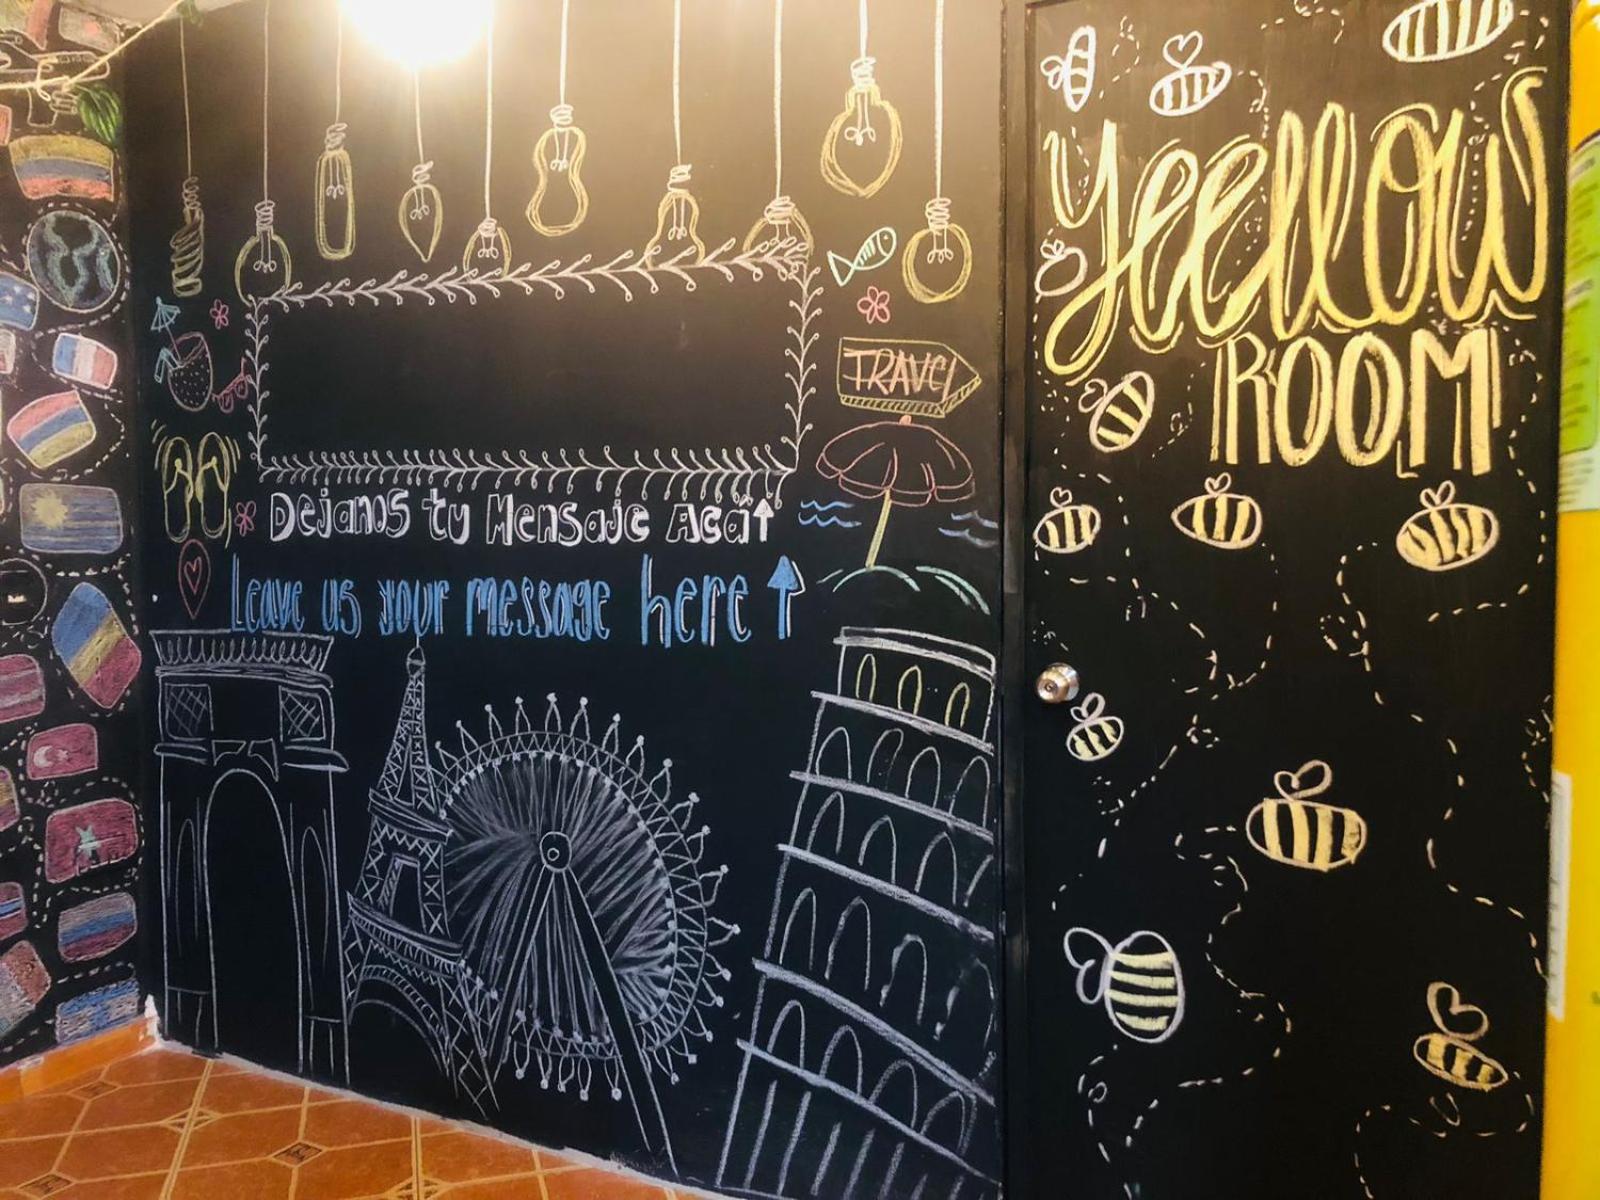 TRAVEL
Dejanos tu Mensaje Acá↑
Leave us your message here ↑
Yeellow
ROOM